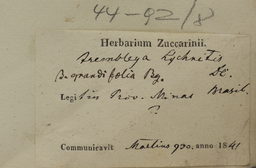 44-92/8
Herbarium Zuccarinii.
Trembleya Lychnitis
DC.
β. grandifolia
Legit in Prov. Minas Brasil.
?
Communicavit Martius anno 1841